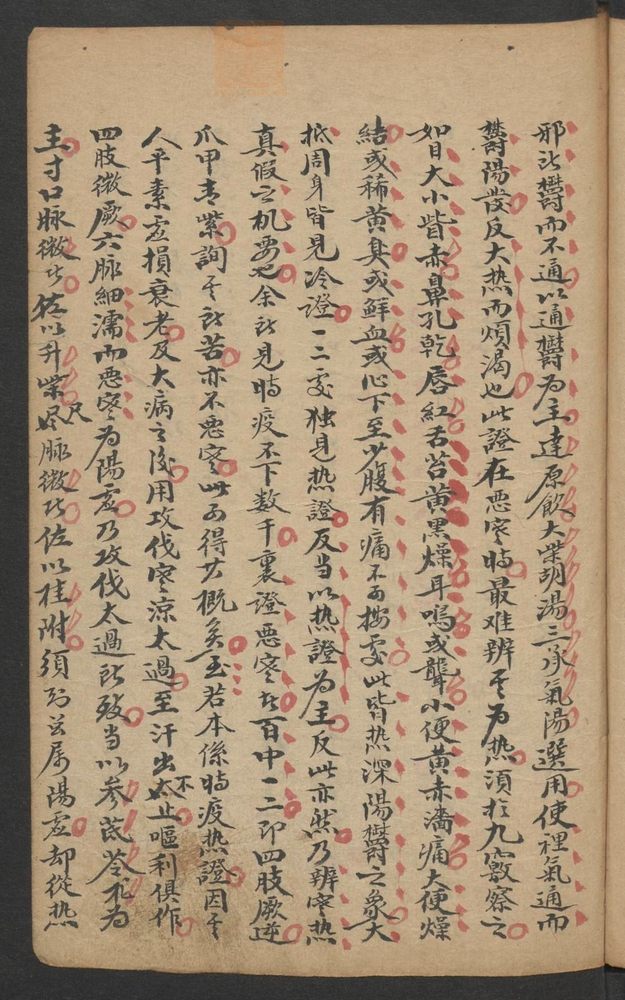 邪所欝而不通以通欝為主達原飲大柴胡湯三承氣湯選用使裡氣通而
欝陽發反大热而煩渴也此證在悪寒時最难辨其为热須於九竅察之
如目大小眥赤鼻孔乾唇紅舌苔黄黒燥耳鳴或聾小便黄赤濇痛大便燥
結或稀黄臭或鮮血或心下至少腹有痛不可按處此皆热深陽欝之象大
抵周身皆見冷證一二處独見热證反当以热證為主反此亦然乃辨寒热
真假之机要也余所見時疫不下数千裏證悪寒者百中一二即四肢厥逆
爪甲青紫詢其所苦亦不悪寒此可得大概矣至若本係時疫热證因其
人平素虚損衰老及大病之後用攻伐寒凉太過至汗出不止嘔利俱作
四肢微厥六脉細濡而悪寒为陽虚乃攻伐太過所致当以参芪苓术为
主寸口脉微者佐以升柴尺脉微者佐以桂附須知此屬陽虚却從热